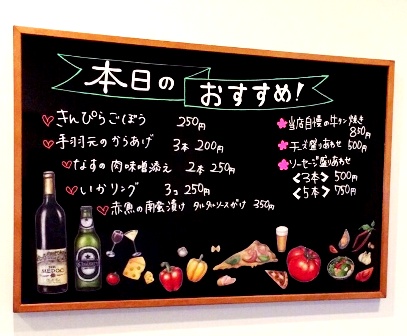 本日の
おすすめ!
きんぴらごぼう 250円
手羽元のからあげ 3本 200円
なすの肉味噌添え 2本 250円
いかリング 3コ 250円
赤魚の南蛮漬け タルタルソースがけ 350円
当店自慢の牛タン焼き
850円
天ぷら盛りあわせ 500円
ソーセージ盛りあわせ
<3本> 500円
<5本> 750円
MEDOC